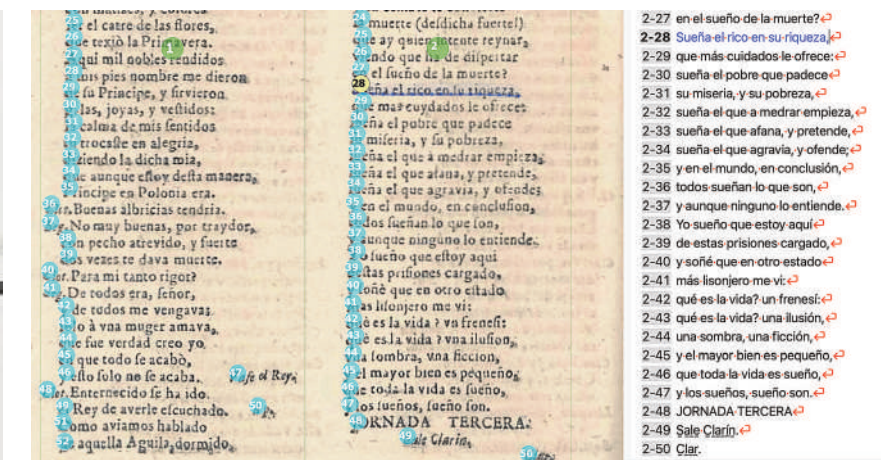 25 el catre de las flores,
26 texiò la Primavera.
1
27 mil nobles rendidos
28 pies nombre me dieron
29 su Principe, y sirvieron
30 joyas, y vestidos:
31 calma de mis sentidos
32 trocaste en alegria,
33 la dicha mia,
34 aunque estoy desta manera,
35 en Polonia era.
36 Buenas albricias tendria.
37 No muy buenas, por traydor,
38 pecho atrevido, y fuerte
39 vezes te dava muerte.
40 Para mi tanto rigor?
41 De todos era, señor,
42 de todos me vengava:
43 à vna muger amava,
44 fue verdad creo yo,
45 que todo se acabò,
46 esto solo no se acaba.
47 el Rey.
48 Enternecido se ha ido.
49 Rey de averle escuchado.
50
51 aviamos hablado
52 aquella Aguila, dormido,
24 muerte (desdicha fuerte!)
25 ay quien intente reynar,
2
26 que ha de dispertar
27 el sueño de la muerte?
28 el rico en su riqueza,
29 mas cuydados le ofrece:
30 el pobre que padece
31 miseria, y su pobreza,
32 el que à medrar empieza,
33 el que afana, y pretende,
34 el que agravia, y ofende;
35 en el mundo, en conclusion,
36 sueñan lo que son,
37 aunque ninguno lo entiende.
38 sueño que estoy aqui
39 prisiones cargado,
40 soñè que en otro estado
41 lisonjero me vi:
42 es la vida ? vn frenesi:
43 es la vida ? vna ilusion,
44 sombra, vna ficcion,
45 el mayor bien es pequeño,
46 toda la vida es sueño,
47 los sueños, sueño son.
48 JORNADA TERCERA.
49 Sale Clarin.
50
2-27 en el sueño de la muerte?
2-28 Sueña el rico en su riqueza,
2-29 que más cuidados le ofrece:
2-30 sueña el pobre que padece
2-31 su miseria, y su pobreza,
2-32 sueña el que a medrar empieza,
2-33 sueña el que afana, y pretende,
2-34 sueña el que agravia, y ofende;
2-35 y en el mundo, en conclusión,
2-36 todos sueñan lo que son,
2-37 y aunque ninguno lo entiende.
2-38 Yo sueño que estoy aquí
2-39 de estas prisiones cargado,
2-40 y soñé que en otro estado
2-41 más lisonjero me vi:
2-42 qué es la vida? un frenesí:
2-43 qué es la vida? una ilusión,
2-44 una sombra, una ficción,
2-45 y el mayor bien es pequeño,
2-46 que toda la vida es sueño,
2-47 y los sueños, sueño son.
2-48 JORNADA TERCERA
2-49 Sale Clarín.
2-50 Clar.